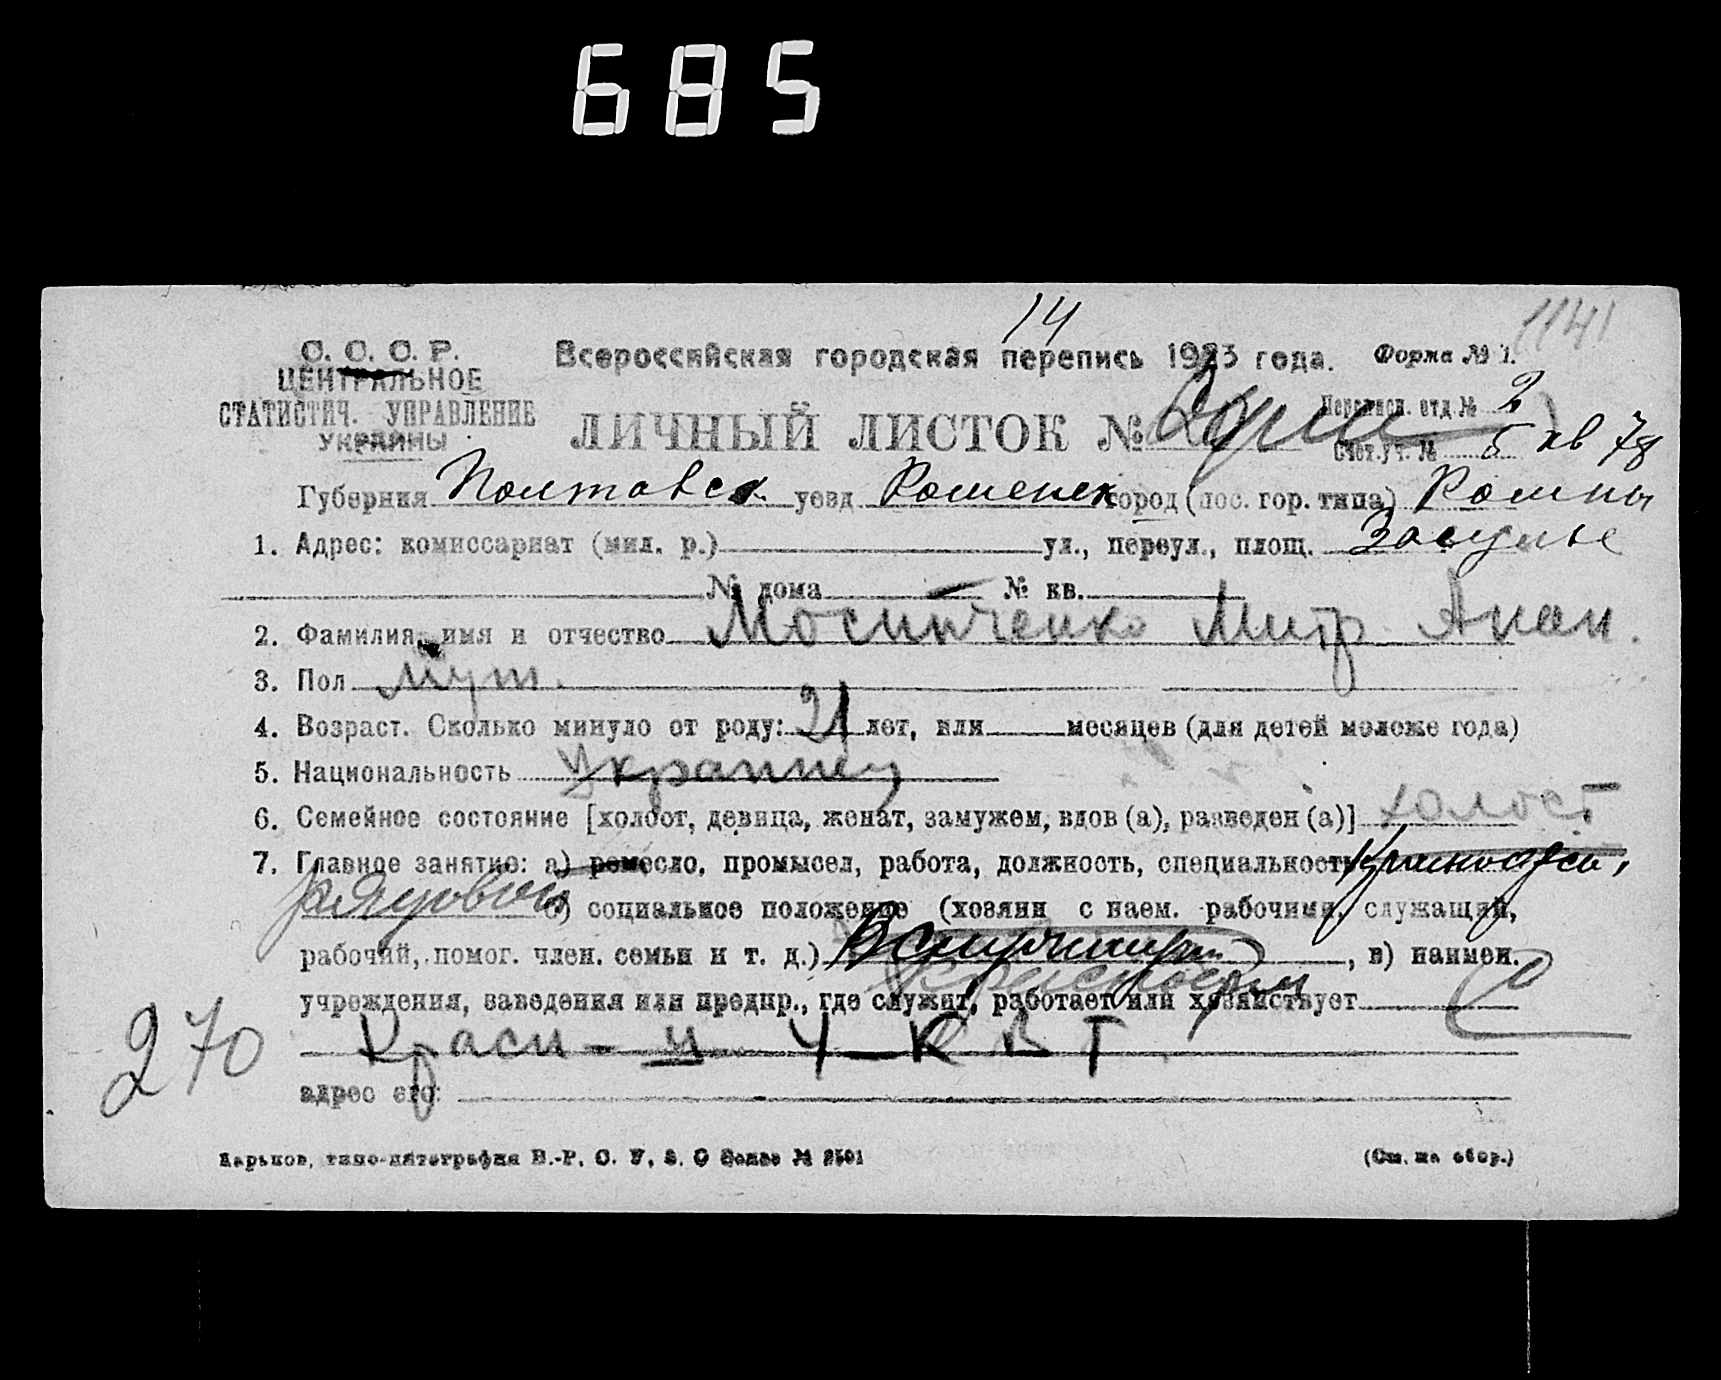 685
14
1141
С. С. С. Р.
ЦЕНТРАЛЬНОЕ
СТАТИСТИЧ. УПРАВЛЕНИЕ
УКРАИНЫ
Всероссийская городская перепись 1923 года. Форма № 1.
ЛИЧНЫЙ ЛИСТОК №
Переписн. отд. № 2
Счет. уч. № 5 кв 78
Губерния Полтавск. уезд Роменск город (пос. гор. типа) Ромны
1. Адрес: комиссариат (мил. р.) ул., переул., площ. Засулье
№ дома № кв.
2. Фамилия, имя и отчество Мосипченко Митр. Анан.
3. Пол муж.
4. Возраст. Сколько минуло от роду: 21 лет, или месяцев (для детей моложе года)
5. Национальность Украинец
6. Семейное состояние [холост, девица, женат, замужем, вдов (а), разведен (а)] холост
7. Главное занятие: а) ремесло, промысел, работа, должность, специальность
рядовой б) социальное положение (хозяин с наем. рабочими, служащий,
рабочий, помог. член. семьи и т. д.) , в) наимен.
красноарм
учреждения, заведения или предпр., где служит, работает или хозяйствует
Красн-й У-К В Г
270
адрес его:
Харьков, типо-литография В.-Р. С. У. З. С Заказ № 2501 (См. на обор.)